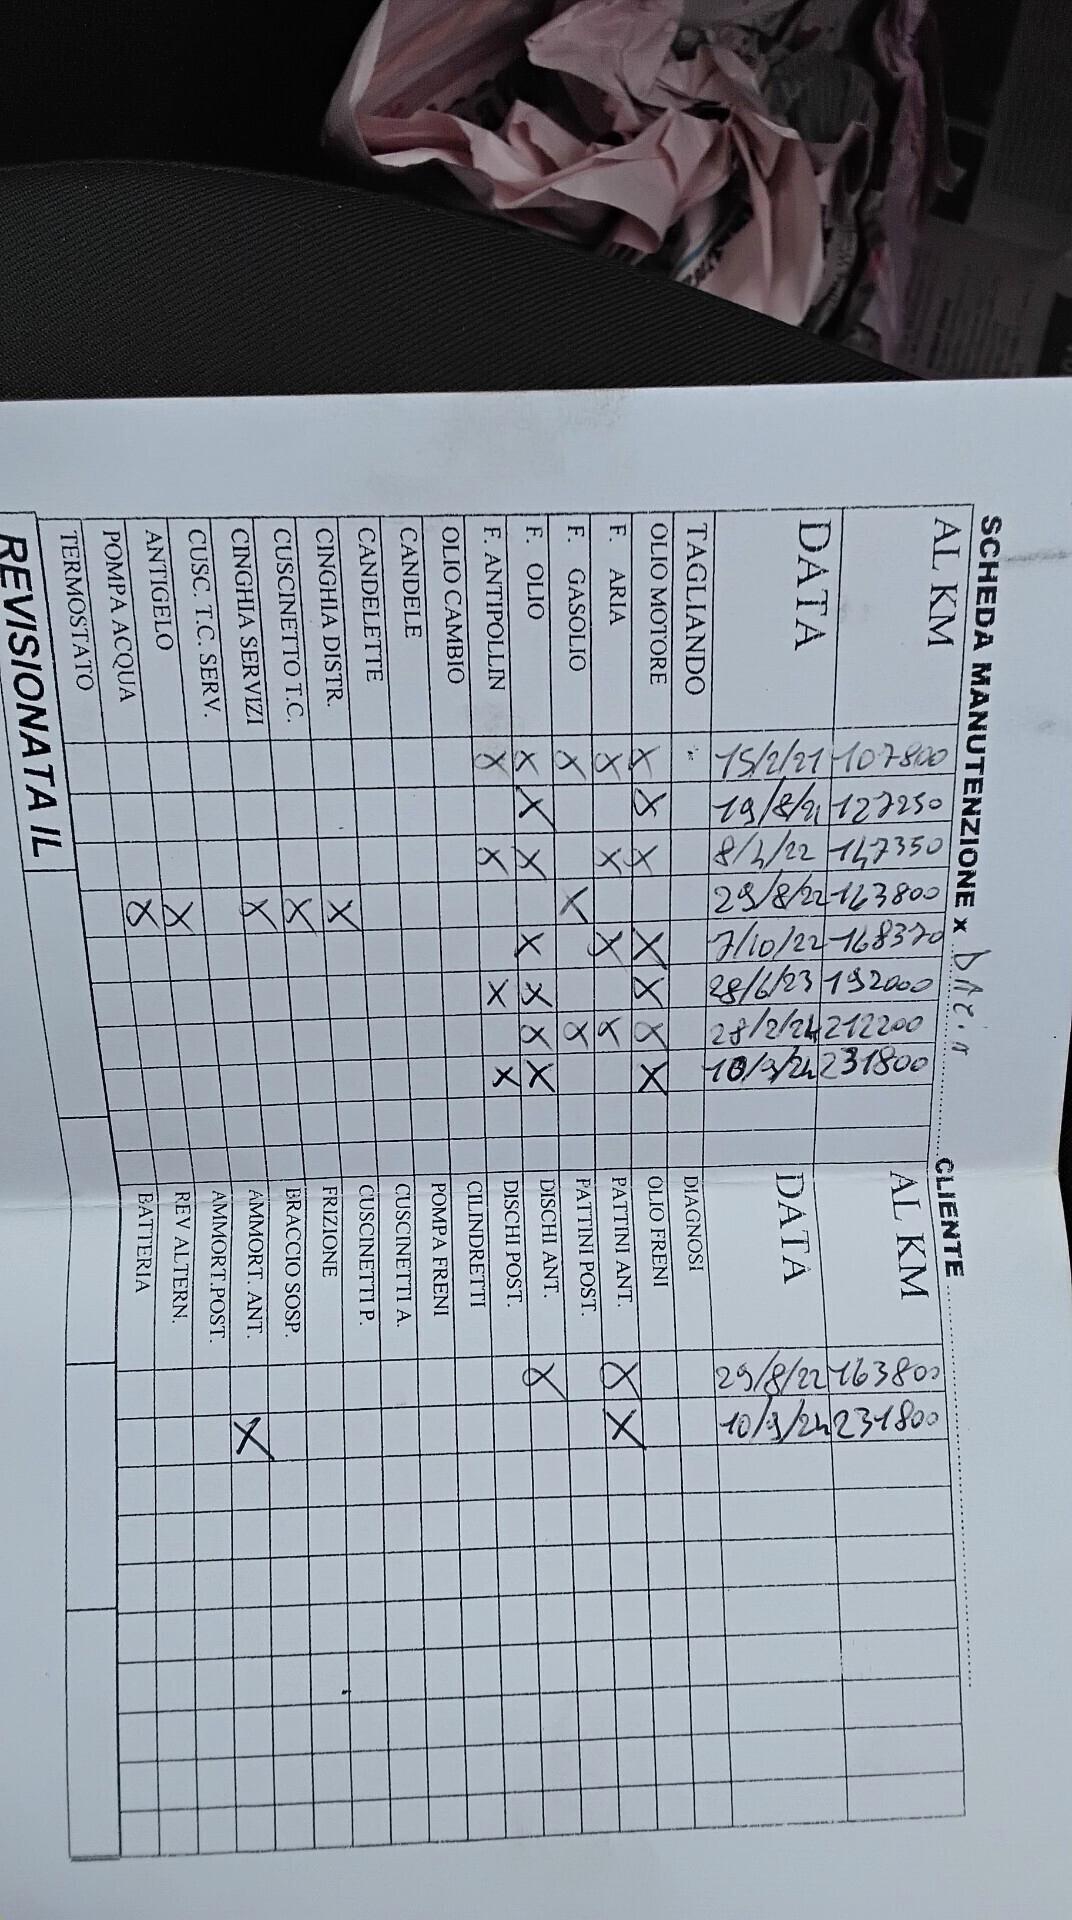 SCHEDA MANUTENZIONE x DACIA CLIENTE
AL KM 107800 127250 147350 163800 168370 192000 212200 231800 AL KM 163800 231800
DATA 15/2/21 19/8/21 8/4/22 29/8/22 7/10/22 28/6/23 28/2/24 10/9/24 DATA 29/8/22 10/9/24
TAGLIANDO DIAGNOSI
OLIO MOTORE X X X X X X X OLIO FRENI
F. ARIA X X X X PATTINI ANT. X X
F. GASOLIO X X X PATTINI POST.
F. OLIO X X X X X X X DISCHI ANT. X
F. ANTIPOLLIN X X X X DISCHI POST.
OLIO CAMBIO CILINDRETTI
CANDELE POMPA FRENI
CANDELETTE CUSCINETTI A.
CINGHIA DISTR. X CUSCINETTI P.
CUSCINETTO T.C. X FRIZIONE
CINGHIA SERVIZI X BRACCIO SOSP.
CUSC. T.C. SERV. AMMORT. ANT. X
ANTIGELO X AMMORT.POST.
POMPA ACQUA X REV ALTERN.
TERMOSTATO BATTERIA
REVISIONATA IL